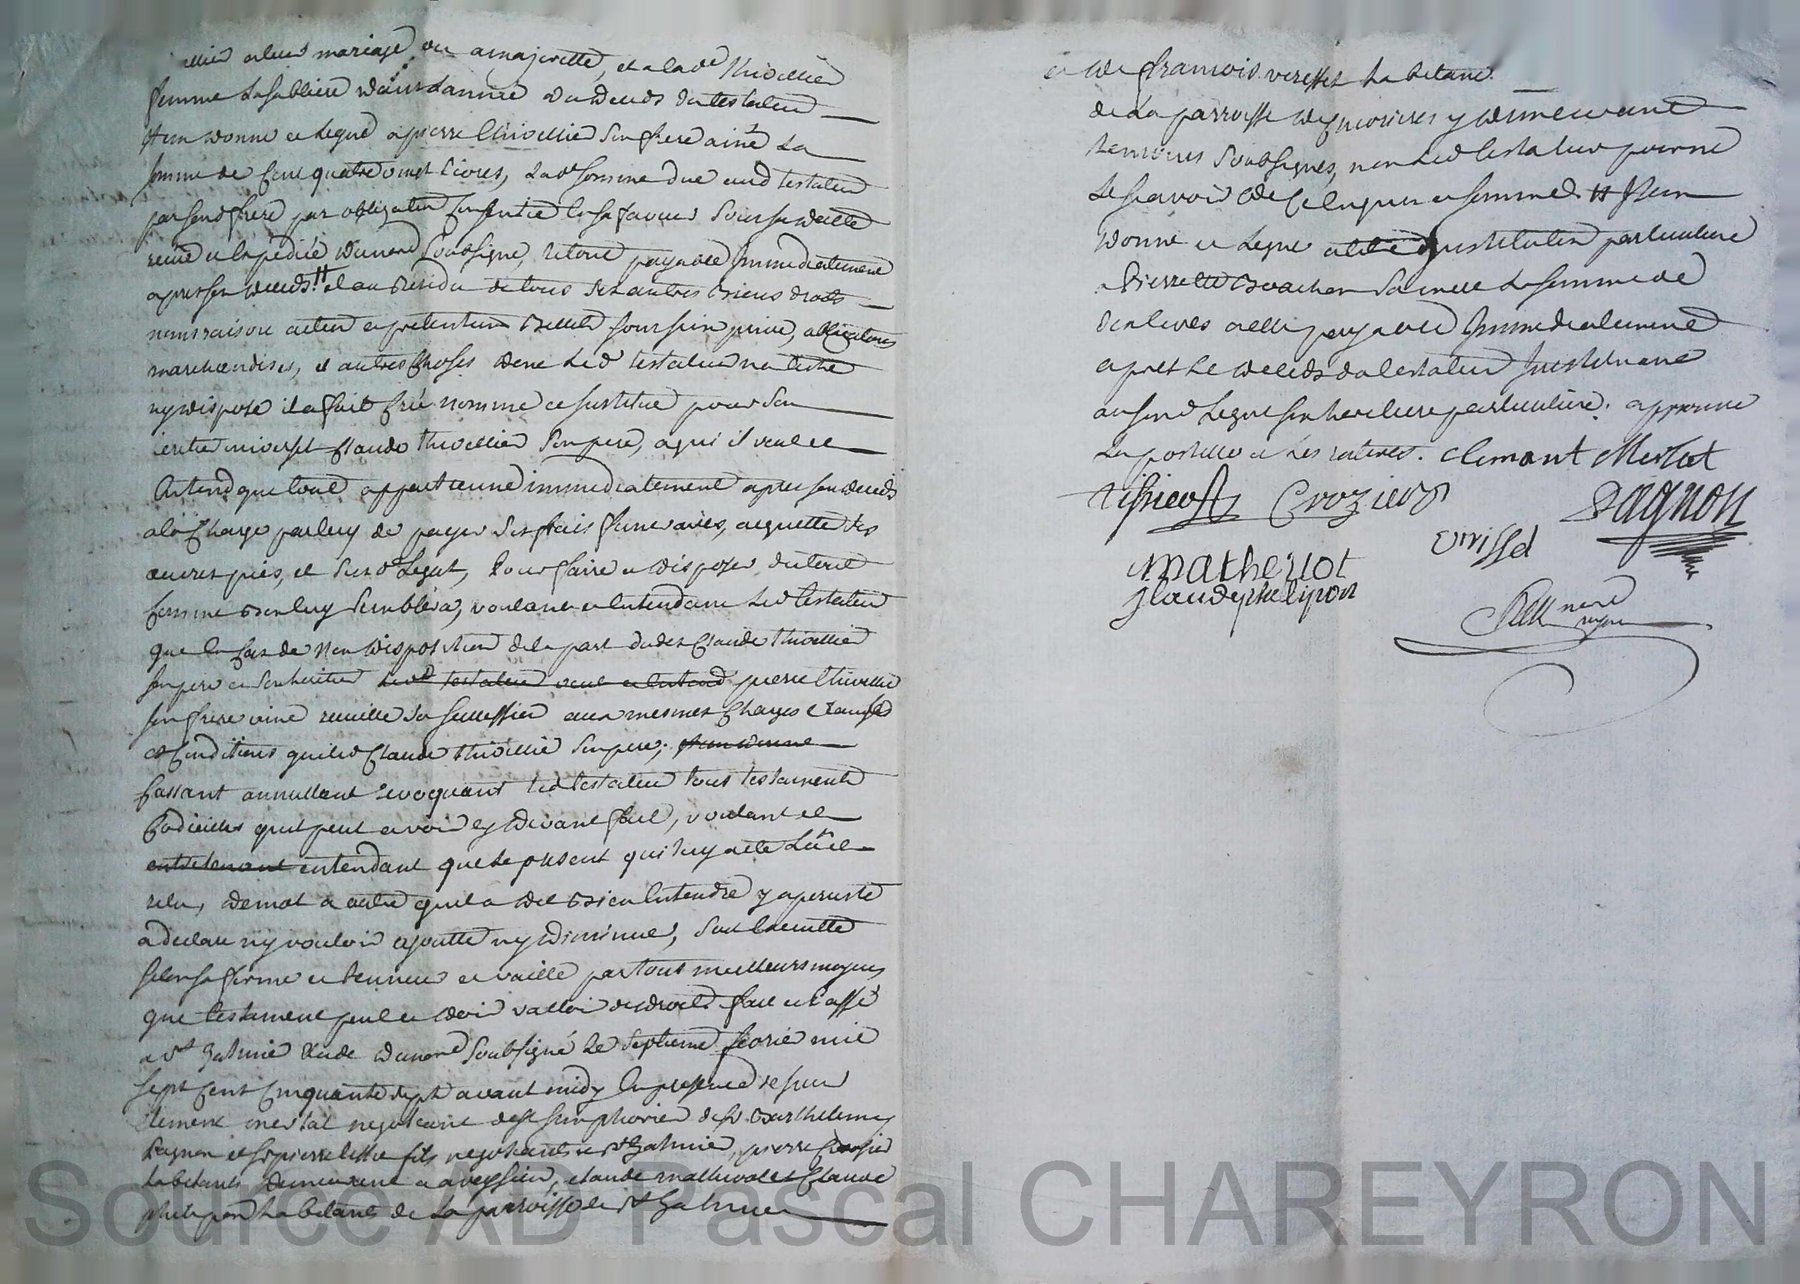 mariage ou a majoritté, et a la d.e thiollier
femme Lasabliere dans Lannée du deceds du testateur
Item donne et Legue a pierre thiollier Son frere ainé La
somme de Cent quatre vingt Livres, Lad. somme due aud testateur
par sond frere par obligation Consentie en sa faveur Sous sa datte
reçüe et Expediée du nore Soubsigné, Le tout payable Immediatement
apres son deceds. # et au Residu de tous Ses autres Biens droits
noms raisons action et pretention Billets sous sein privé, obligations
marchandises, et autres Choses dont Led testateur
ny disposé il a fait Créé nommé et Institué pour Son
heritier universel Claude thiollier Son pere, a qui il veut et
Entend que tout appartienne immediatement apres son deceds
a la Charge par luy de payer Ses frais funeraires, acquitter Ses
œuvres pies, et Susd Legats, Pour faire et disposer du tout
Comme Bon luy Semblera, voulant et Entendant Led testateur
que En Cas de Non disposition de la part dudit Claude thiollier
son pere et Son heritier Led testateur veut et entend pierre thiollier
son frere ainé recueille Sa Succession aux mesmes Charges Clauses
et Conditions que led Claude thiollier Son pere; Item donne
Cassant annullant revoquant Led testateur tous testaments
Codicilles quil peut avoir cy devant fait, voulant et
entretenant entendant que Le present qui luy a été Lu et
relu, de mot a autre quil a dit Bien Entendre y a persisté
a declaré ny vouloir ajoutter ny diminuer, Sorte
selon sa forme et teneur et vaille par tous meilleurs moyens
que testament peut et doit valloir de droit. fait et Passé
a St Galmier Etude du nore Soubsigné Le Septieme
Sept Cent Cinquante Sept avant midy En presence de sieur
Clement merlat negotiant de St Simphorien de Sr Barthelemy
Pagnon et Sr pierre fils negotiants a St Galmier, pierre Crozier
habitant demeurant a aveyzieu, claude mathevot et Claude
phelipon habitants de La parroisse de St Galmier
et de francois verisset habitant
de La parroisse de y demeurant
temoins Soubsignes, non Led testateur pour ne
Le Scavoir de Ce Enquis et Sommé. # Item
donne et Legue a titre d'institution particuliere
a Pierrette Sa mere La somme de
Livres a elle payable Immediatement
apres Le deceds du testateur Instituant
au Sond Legue Son heritiere particuliere. approuvé
La postille et Les ratures. Clemant Merlat
Crozier Pagnon
verisset
Mathevot
Claude phelipon
Source AD Pascal CHAREYRON